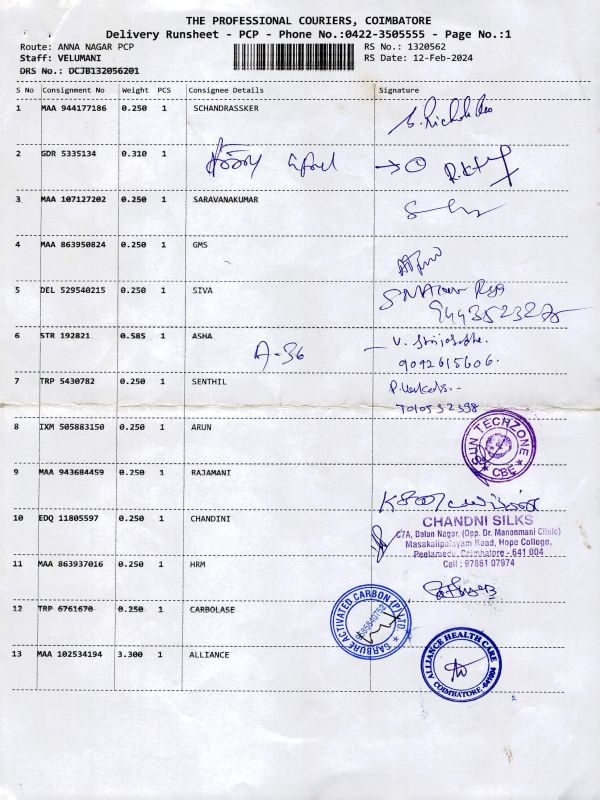 THE PROFESSIONAL COURIERS, COIMBATORE
Delivery Runsheet - PCP - Phone No.:0422-3505555 - Page No.:1
Route: ANNA NAGAR PCP RS No.: 1320562
Staff: VELUMANI RS Date: 12-Feb-2024
DRS No.: DCJB132056201
S No Consignment No Weight PCS Consignee Details Signature
1 MAA 944177186 0.250 1 SCHANDRASSKER
2 GDR 5335134 0.310 1
3 MAA 107127202 0.250 1 SARAVANAKUMAR
4 MAA 863950824 0.250 1 GMS
5 DEL 529540215 0.250 1 SIVA
6 STR 192821 0.585 1 ASHA
A-36
9092615606.
7 TRP 5430782 0.250 1 SENTHIL
8 IXM 505883150 0.250 1 ARUN
SUN TECHZONE
CBE
9 MAA 943684459 0.250 1 RAJAMANI
10 EDQ 11805597 0.250 1 CHANDINI
CHANDNI SILKS
C7A, Balan Nagar, (Opp. Dr. Manonmani Clinic)
Masakalipalayam Road, Hope College,
Peelamedu, Coimbatore - 641 004
Cell : 97861 07974
11 MAA 863937016 0.250 1 HRM
12 TRP 6761670 0.250 1 CARBOLASE
CARBURE ACTIVATED CARBON (P) LTD
13 MAA 102534194 3.300 1 ALLIANCE
ALLIANCE HEALTH CARE
COIMBATORE-641004